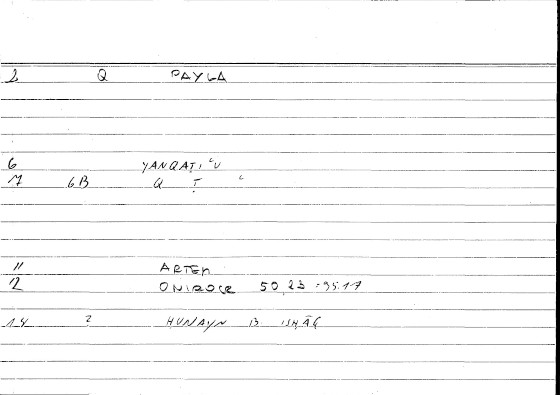 2 Q PAYLA
6 YANQAṬIʿU
7 6B Q Ṭ ʿ
11 ARTEM
12 ONIROCR 50,23 -95.17
14 ? HUNAYN B ISḤĀQ